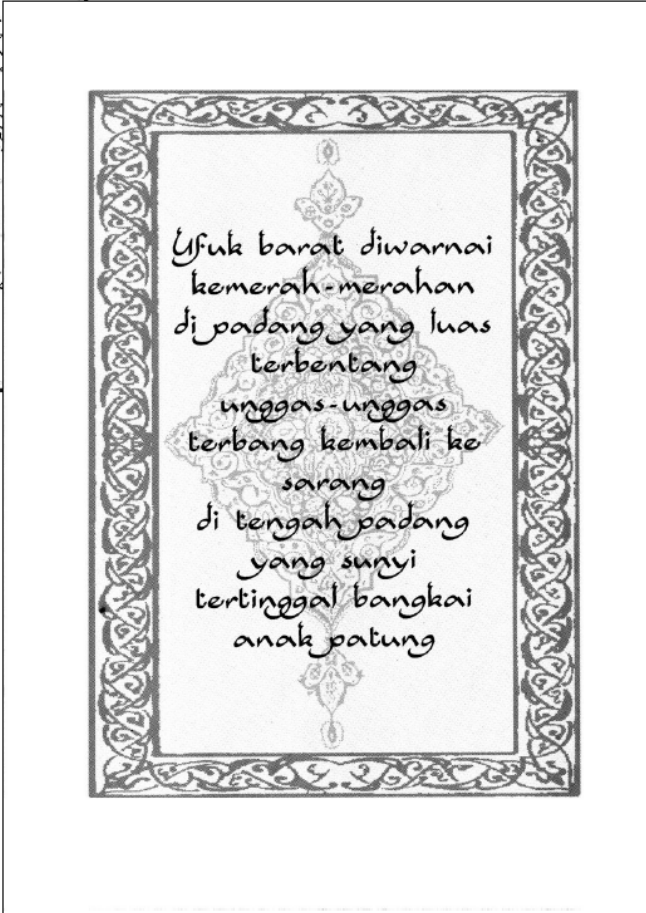 Ufuk barat diwarnai
kemerah-merahan
di padang yang luas
terbentang
unggas-unggas
terbang kembali ke
sarang
di tengah padang
yang sunyi
tertinggal bangkai
anak patung